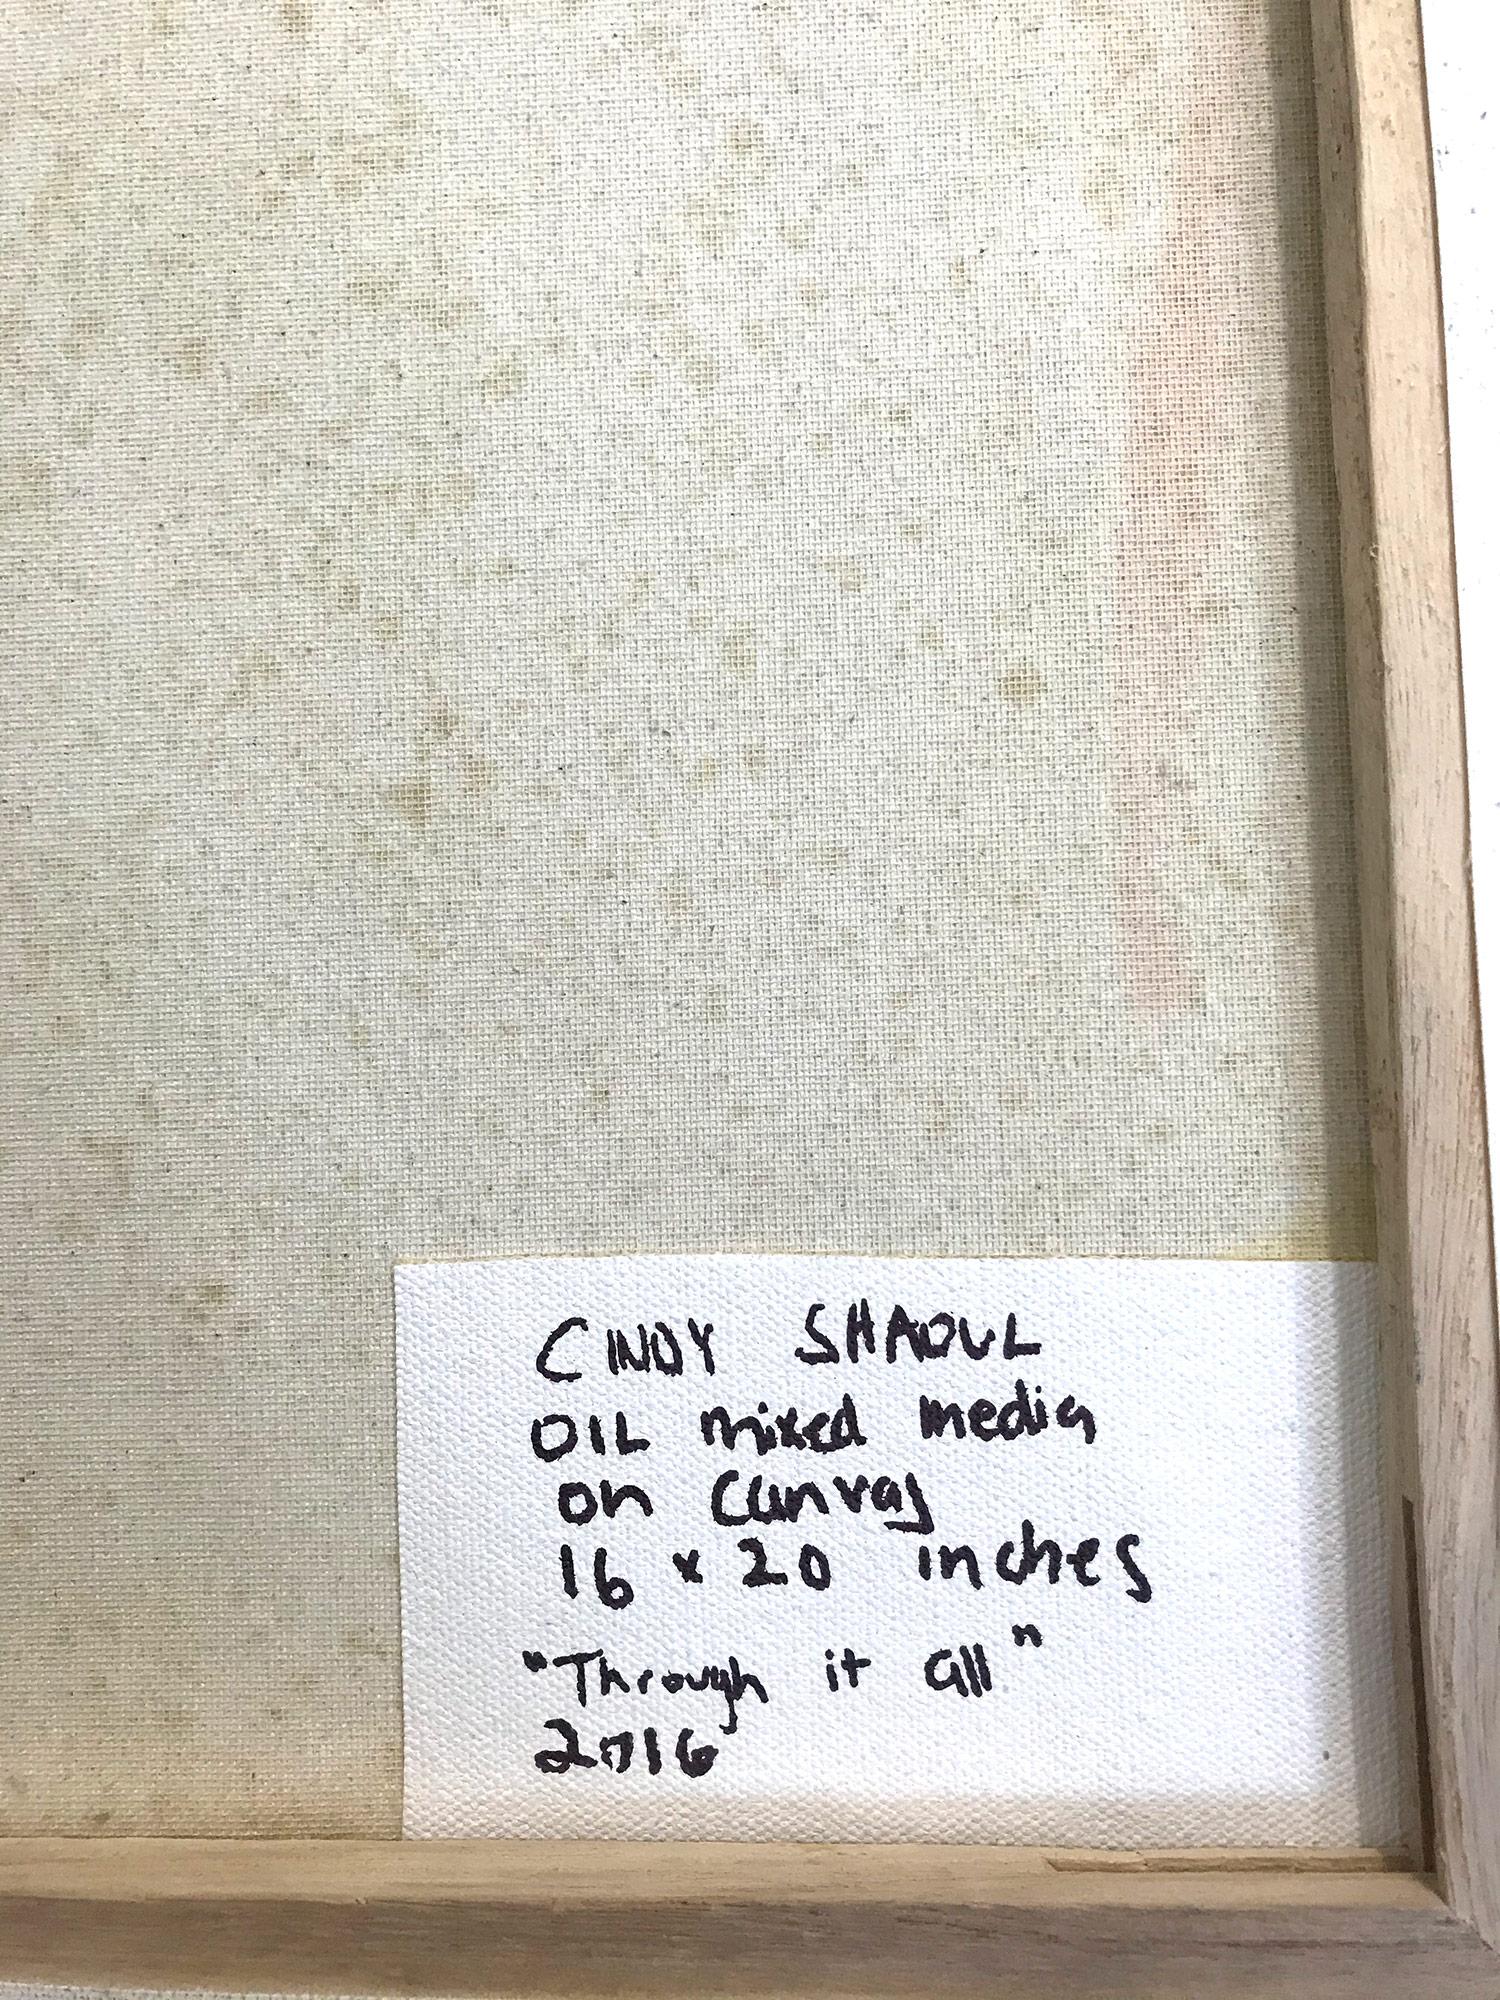 CINDY SHAOUL
OIL mixed media
on Canvas
16 x 20 inches
"Through it all"
2016